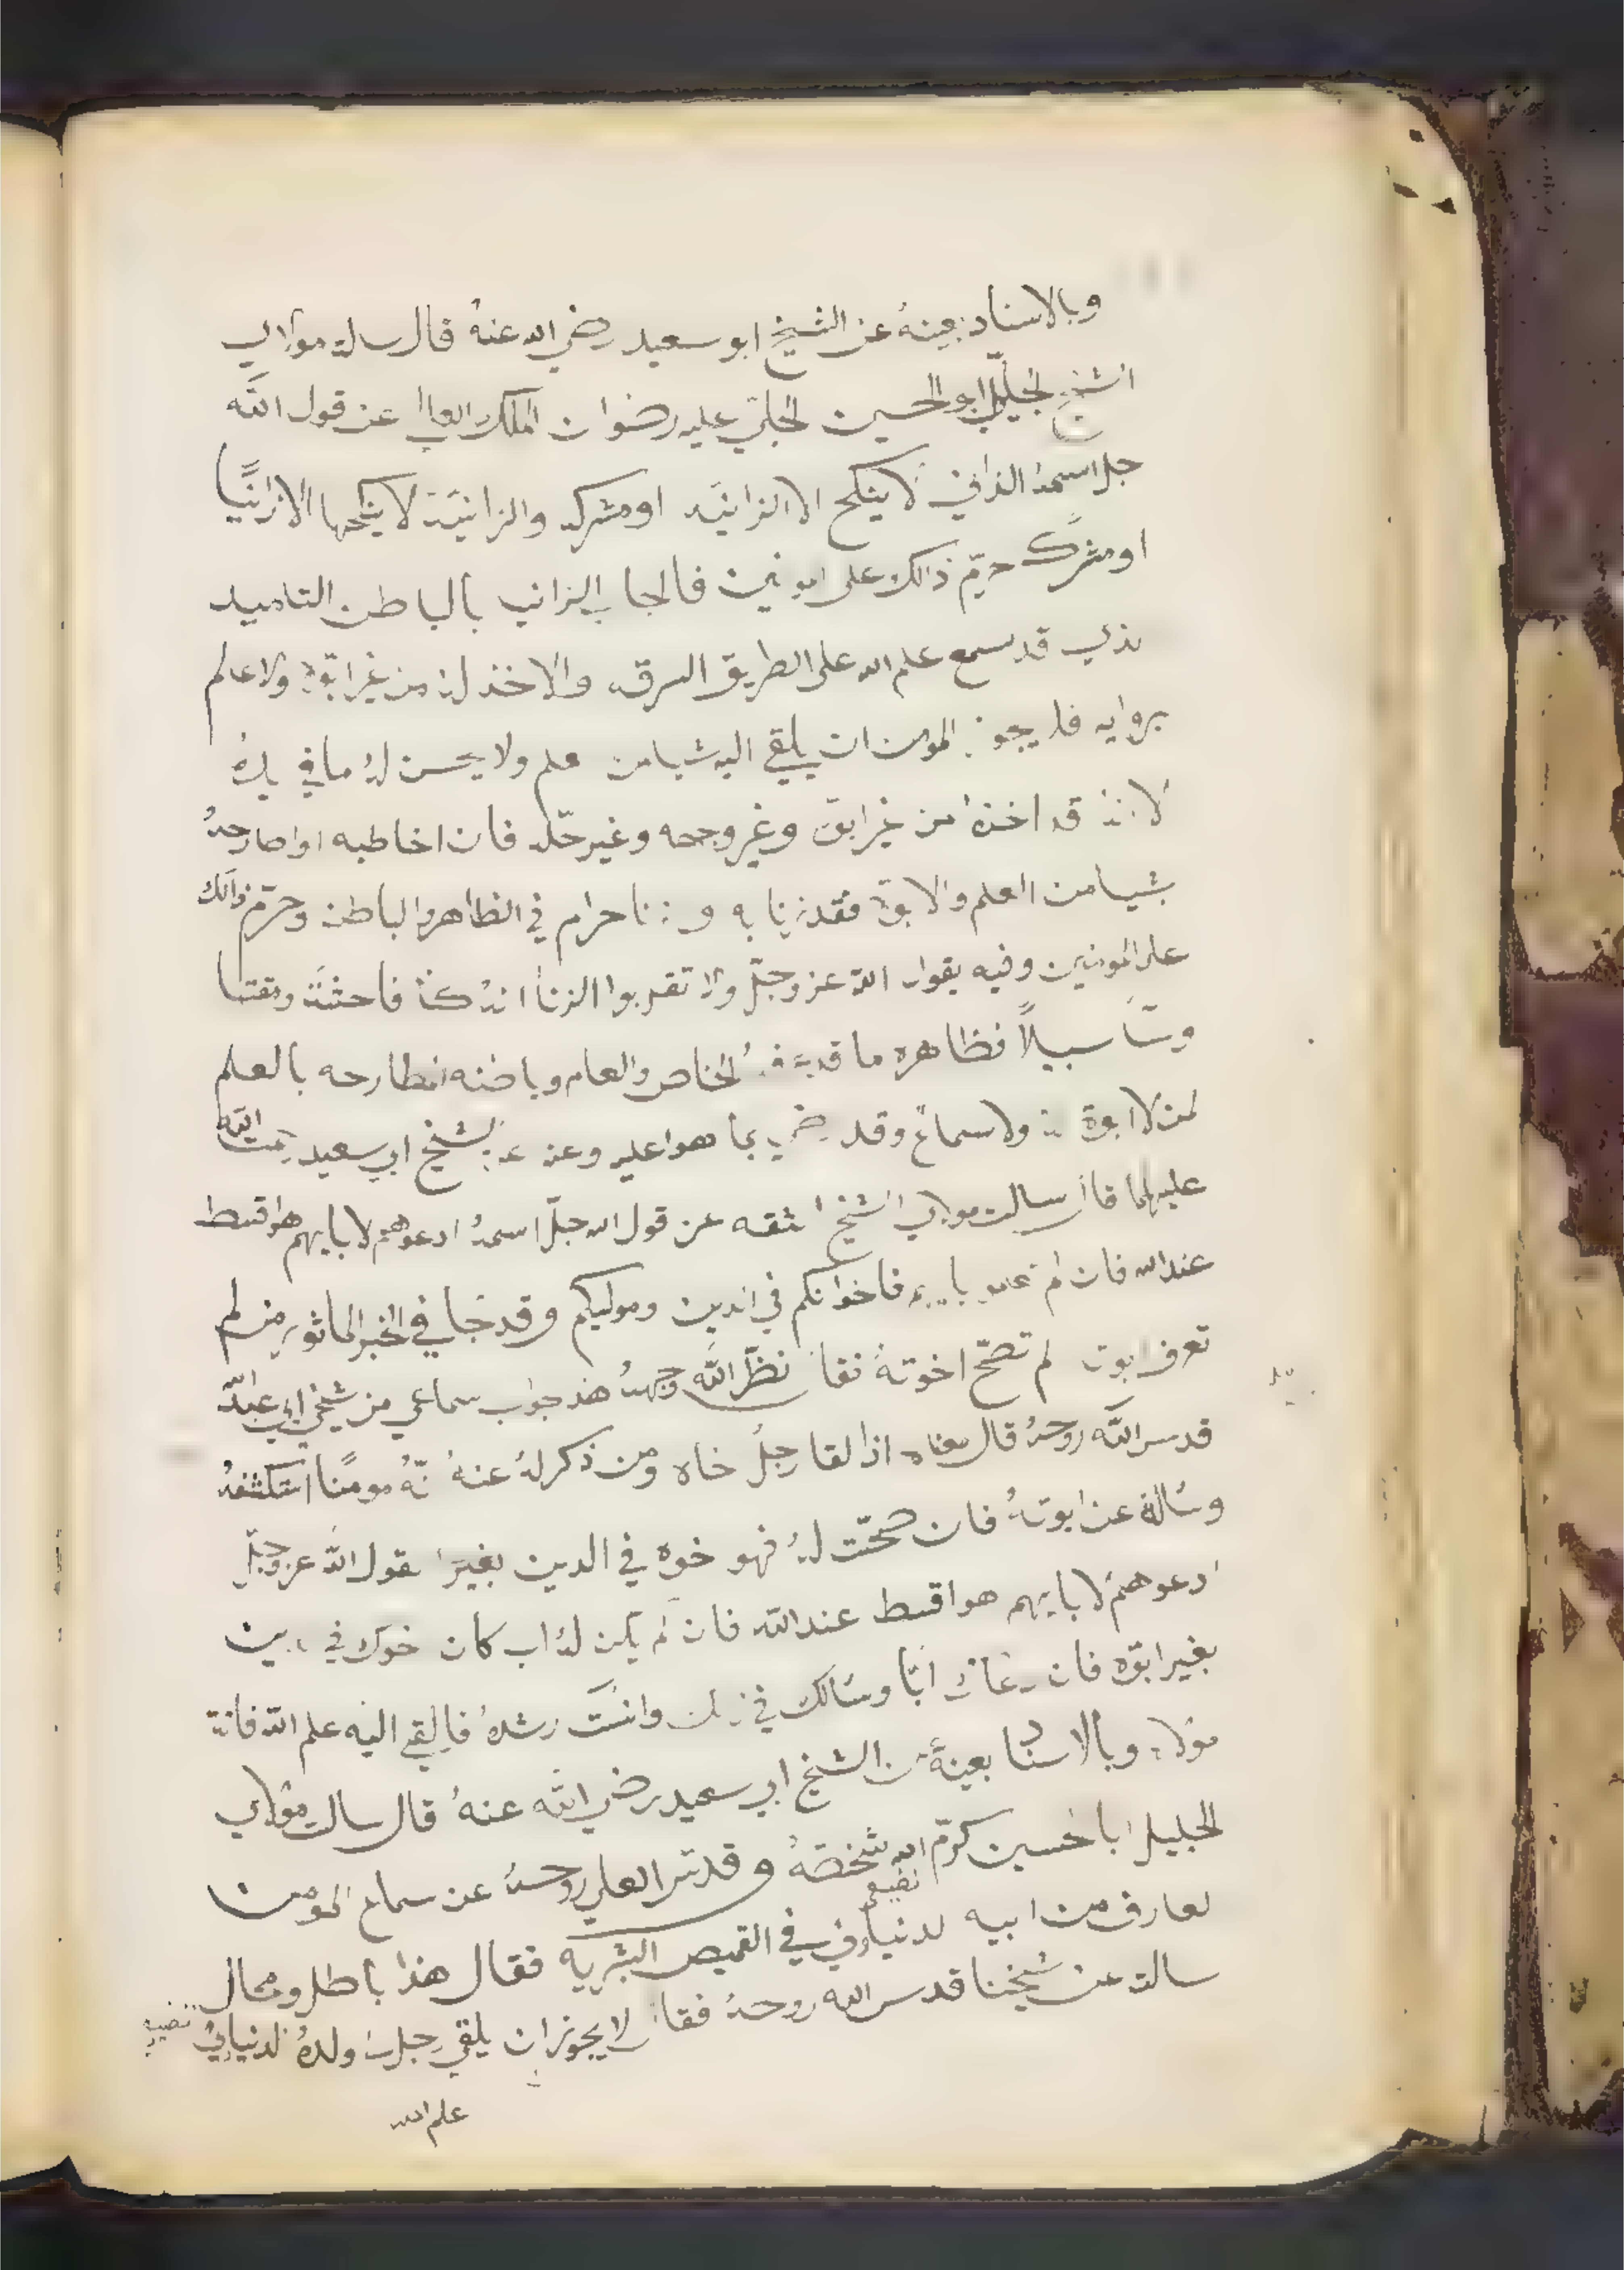 وبالاسناد بعينهُ عن الشيخ ابو سعيد رضي الله عنهُ قال سالت مولاي
الشيخ الجليل ابو الحسين الجلي عليه رضوان الملك العلي عن قول الله
جل اسمهُ الزاني لا ينكح الا الزانيه او مشركه والزانيَة لا ينكحها الا زانيًا
او مشرك حرّم ذالك على المومنين فالجا الزاني بالباطن التلميد
الذي قد سمع علم الله على الطريق السرقه والاخذ لهُ من غير ابوّة ولا عالم
بروايه فلا يجوز المومن ان يلقي اليه شيا من علم ولا يحسن لهُ ما في يدهُ
لانهُ قد اخذهُ من غير ابوّة وغير وجهه وغير حلّه فان اخاطبه او اصارحهُ
بشيا من العلم والابوّة فقد زنا به و زنا حرام في الظاهر والباطن وحرّم ذالك
على المومنين وفيه يقول الله عز وجلّ ولا تقربوا الزنا انهُ كان فاحشَة ومقتا
وسَآ سبيلاً فظاهره ما قد الخاص والعام وباطنه امطارحه بالعلم
لمن لا ابوة لهُ ولا سماع وقد رضي بما هوا عليه وعنه عن الشيخ ابي سعيد رحمت الله
عليهما قال سالت مولاي الشيخ الثقه عن قول الله جلّ اسمهُ ادعوهم لابايهم هوا قسط
عند الله فان لم تعلمو ابايهم فاخوانكم في الدين ومواليكم وقد جا في الخبر الماثور من لم
تعرف ابوته لم تصحّ اخوتهُ فقال نظّر الله وجههُ هذ جواب سماعي من شيخي ابي عبد الله
قدس الله روحهُ قال معناه اذا لقا رجلُ خاه ومن ذكر لهُ عنهُ انّهُ مومنًا استكشفهُ
وسَالهُ عن ابوتهُ فان صحّت لهُ فهو خوه في الدين بغير يقول الله عز وجلّ
ادعوهم لابايهم هوا قسط عند الله فان لم يكن لهُ اب كان خوك في الدين
بغير ابوّه فان ابًا وسَالك في ذلك وانسَت رشدهُ فالقي اليه علم الله فانهُ
مولاه وبالاسناد بعينهُ عن الشيخ ابي سعيد رضي الله عنهُ قال سالت مولاي
الجليل ابا الحسين كرّم الله شخصَهُ وقدس العلي روحهُ عن سماع المومن
العارف من ابيه لدنياوي في القميص البشريه فقال هذا باطل ومحال
نصيعي
سالت عن شيخنا قدس الله روحهُ فقال لا يجوز ان يلقي رجل ولدهُ لدنياوي نصيب
علم الله